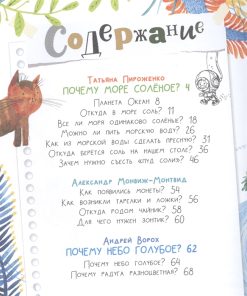 Содержание
Татьяна Пироженко
ПОЧЕМУ МОРЕ СОЛЁНОЕ? 4
Планета Океан 8
Откуда в море соль? 11
Все ли моря одинаково солёные? 18
Можно ли пить морскую воду? 26
Как из морской воды сделать пресную? 31
Откуда берётся соль на нашем столе? 36
Зачем нужно съесть «пуд соли»? 46
Александр Монвиж-Монтвид
Как появились монеты? 54
Как возникли тарелки и ложки? 56
Откуда родом чайник? 58
Для чего нужен зонтик? 60
Андрей Ворох
ПОЧЕМУ НЕБО ГОЛУБОЕ? 62
Почему небо голубое? 64
Почему радуга разноцветная? 68